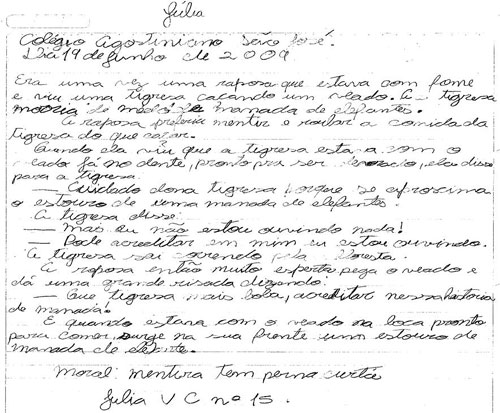 Júlia
Colégio Agostiniano São José.
Dia 19 de junho de 2009
Era uma vez uma raposa que estava com fome
e viu uma tigresa caçando um veado. A tigresa
morria de medo de manada de elefantes.
A raposa preferia mentir e roubar a comida da
tigresa do que caçar.
Quando ela viu que a tigresa estava com o
veado já no dente, pronto pra ser devorado, ela disse
para a tigresa:
— Cuidado dona tigresa porque se aproxima
o estouro de uma manada de elefantes.
A tigresa disse:
— Mas eu não estou ouvindo nada!
— Pode acreditar em mim eu estou ouvindo.
A tigresa sai correndo pela floresta.
A raposa então muito esperta pega o veado e
dá uma grande risada dizendo:
— Que tigresa mais boba, acreditar nessa história
de manada!
E quando estava com o veado na boca pronto
para comer, surge na sua frente um estouro de
manada de elefante.
Moral: mentira tem perna curta
Júlia V C nº 15.